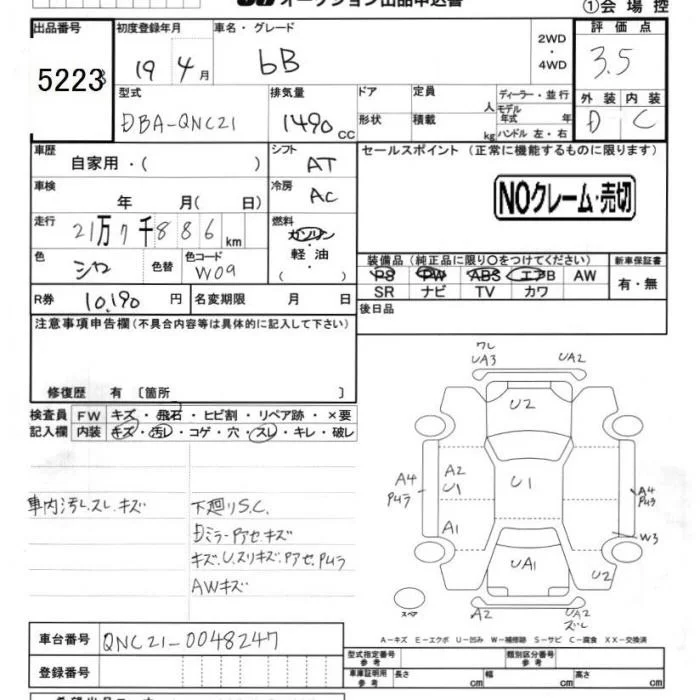 オークション出品申込書
①会場控
出品番号
初度登録年月
車名・グレード
評価点
5223
19年4月
bB
2WD
・
4WD
3.5
型式
排気量
ドア
定員
人
ディーラー・並行
外装
内装
DBA-QNC21
1490 CC
形状
積載
kg
モデル年式 年
ハンドル 左・右
D
C
車歴
自家用・( )
シフト
AT
セールスポイント (正常に機能するものに限ります)
車検
年 月( 日)
冷房
AC
NOクレーム・売切
走行
21万7千886km
燃料
ガソリン
・
軽油
( )
色
シロ
色替
色コード
W09
装備品 (純正品に限り○をつけてください)
新車保証書
PS PW ABS エアB AW
SR ナビ TV カワ
有・無
R券
10,190円
名変期限 月 日
後日品
注意事項申告欄(不具合内容等は具体的に記入して下さい)
修復歴 有 〔箇所 〕
検査員
記入欄
FW キズ・飛石・ヒビ割・リペア跡・×要
内装 キズ・汚レ・コゲ・穴・スレ・キレ・破レ
車内汚レ.スレ.キズ
下廻りS.C.
Dミラーアセ.キズ
キズ.U.スリキズ.アセ.ムラ
AWキズ
ワレ
UA3
UA2
U2
A4
ムラ
A2
U1
U1
A4
A1
W3
UA1
U2
スペア
A2
UA2
ズレ
A-キズ E-エクボ U-凹み W-補修跡 S-サビ C-腐食 XX-交換済
車台番号
QNC21-0048247
型式指定番号
参考
類別区分番号
参考
登録番号
車庫証明用
参考
長さ cm
幅 cm
高さ cm